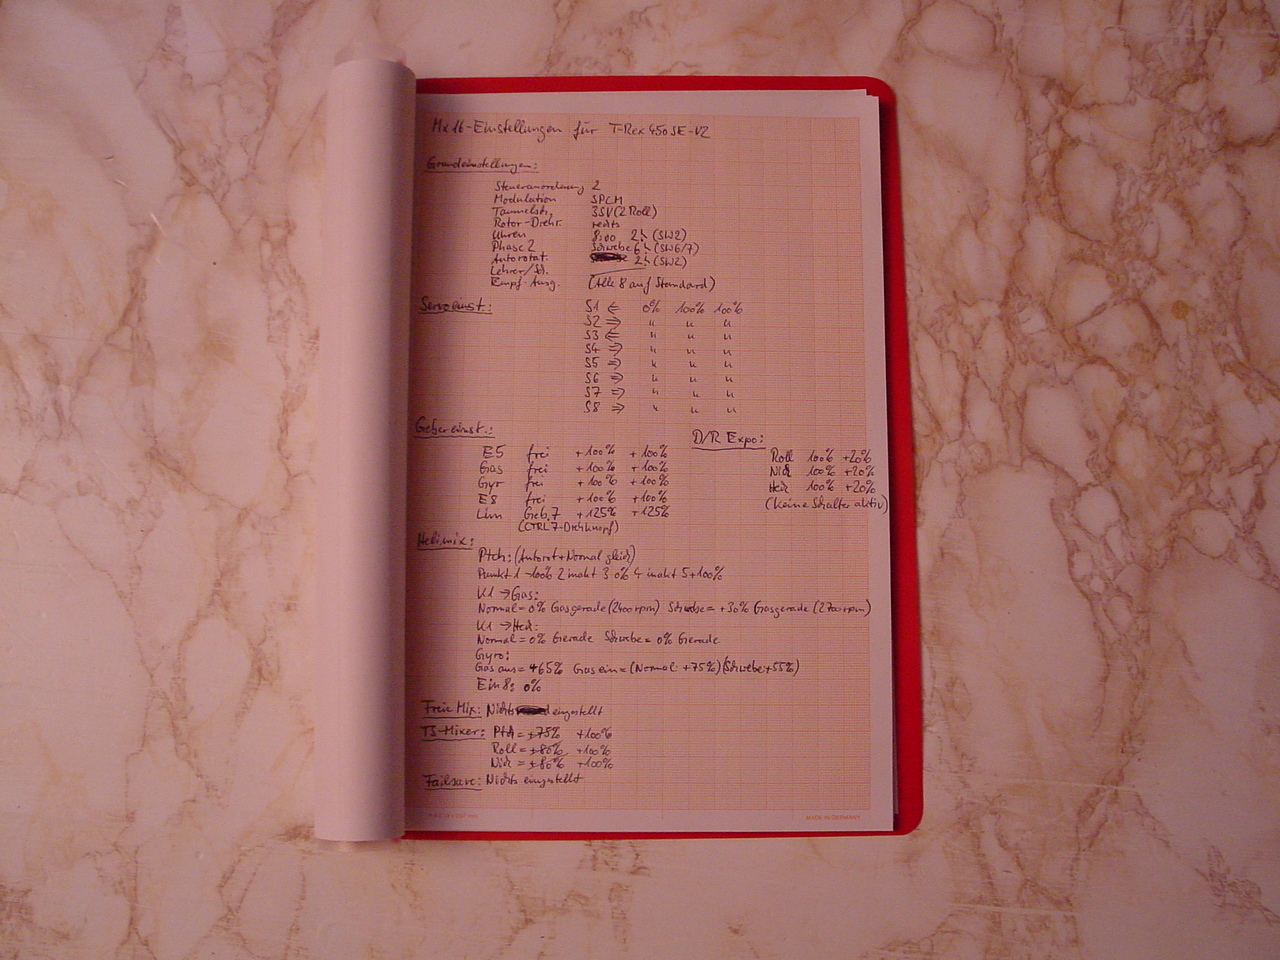 Mx16-Einstellungen für T-Rex 450SE-V2
Grundeinstellungen:
Steueranordnung 2
Modulation SPCM
Taumelsch. 3SV(2Roll)
Rotor-Drehr. rechts
Uhren 8:00 2 (SW2)
Phase 2 Schwebe 6 (SW6/7)
Autorotat. 2 (SW2)
Lehrer/Sch.
Empf.-Ausg. (Alle 8 auf Standard)
Servoeinst.:
S1 ⇐ 0% 100% 100%
S2 ⇒ " " "
S3 ⇐ " " "
S4 ⇒ " " "
S5 ⇒ " " "
S6 ⇒ " " "
S7 ⇒ " " "
S8 ⇒ " " "
Gebereinst.:
E5 frei +100% +100%
Gas frei +100% +100%
Gyr frei +100% +100%
E8 frei +100% +100%
Lim Geb.7 +125% +125%
(CTRL7-Drehknopf)
D/R Expo:
Roll 100% +20%
Nick 100% +20%
Heck 100% +20%
(Keine Schalter aktiv)
Helimix:
Ptch: (Autorot+Normal gleich)
Punkt 1 -100% 2 inakt 3 0% 4 inakt 5 +100%
K1 → Gas:
Normal = 0% Gasgerade (2400rpm) Schwebe = +30% Gasgerade (2700rpm)
K1 → Heck:
Normal = 0% Gerade Schwebe = 0% Gerade
Gyro:
Gas aus = +65% Gas ein = (Normal: +75%) (Schwebe: +55%)
Ein 8: 0%
Freie Mix: Nichts eingestellt
TS-Mixer: Ptch = ±75% +100%
Roll = ±80% +100%
Nick = ±80% +100%
Failsave: Nichts eingestellt
MADE IN GERMANY